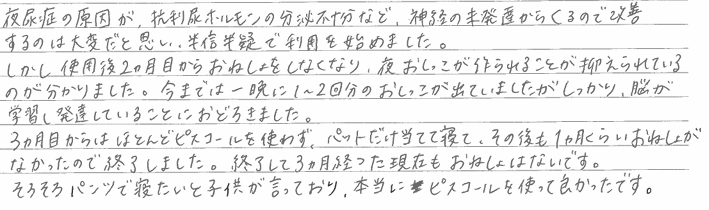 夜尿症の原因が、抗利尿ホルモンの分泌不十分など、神経の未発達からくるので改善
するのは大変だと思い、半信半疑で利用を始めました。
しかし使用後2ヵ月目からおねしょをしなくなり、夜おしっこが作られることが抑えられている
のが分かりました。今までは一晩に1~2回分のおしっこが出ていましたがしっかり、脳が
学習し発達していることにおどろきました。
3ヵ月目からはほとんどピスコールを使わず、パットだけ当てて寝て、その後も1ヵ月くらいおねしょが
なかったので終了しました。終了して3ヵ月経った現在もおねしょはないです。
そろそろパンツで寝たいと子供が言っており、本当にピスコールを使って良かったです。